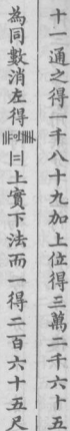 十一通之得一千八十九加上位得三萬二千六十五
為同數消左得𝍫𝍧〣上實下法而一得二百六十五尺